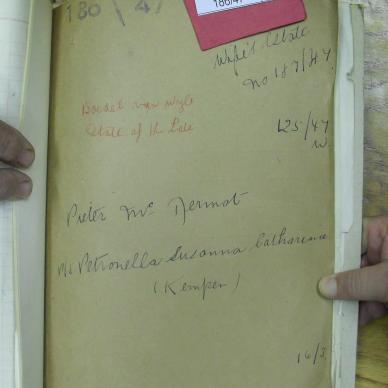 180/47
186/4
Wife's Estate
No 187/47
Boedel van wyle
Estate of the Late
125/47
W.
Pieter Mc Dermot
Petronella Susanna Catharina
(Kemper)
16/3